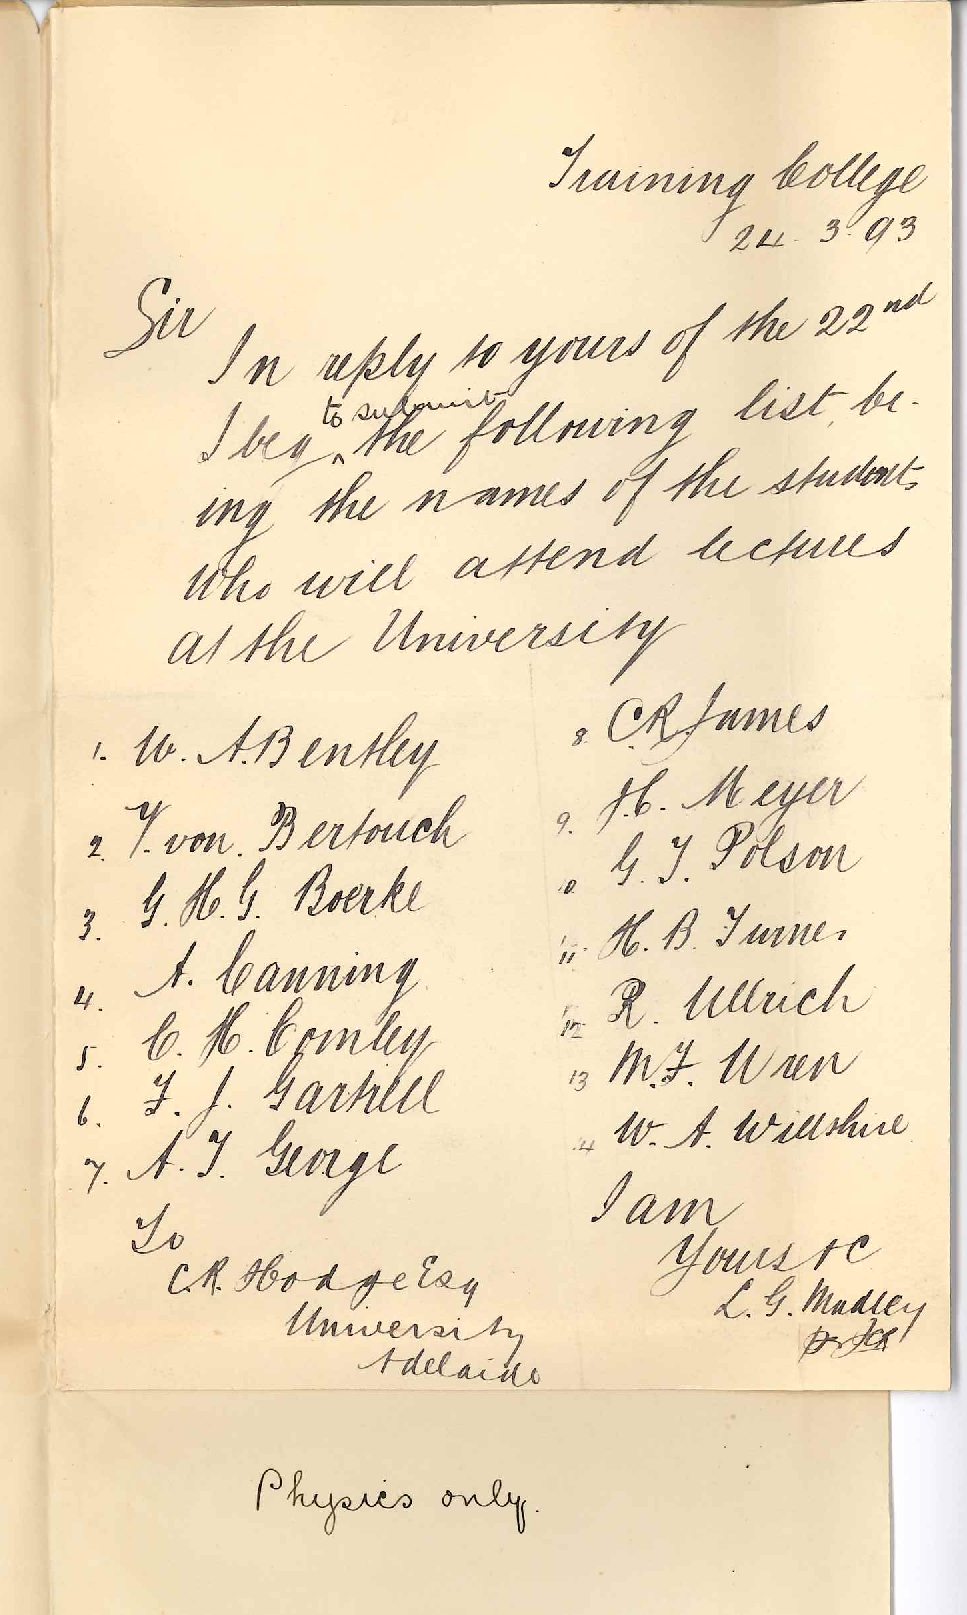 Training College
24. 3. 93
Sir
In reply to yours of the 22nd
to submit
I beg ^ the following list, be-
ing the names of the students
who will attend lectures
at the University
1. W. A. Bentley
2. V. von. Bertouch
3. G. H. G. Boerke
4. A. Canning
5. C. H. Comley
6. F. J. Gartrell
7. A. T. George
8. C R James
9. H. Meyer
10 G. T. Polson
11. H. B. Turner
12 R. Ullrich
13 M. F. Wren
14 W. A. Willshire
I am
Yours &c
L. G. Madley
To
C. R. Hodge Esq
University
Adelaide
Physics only.